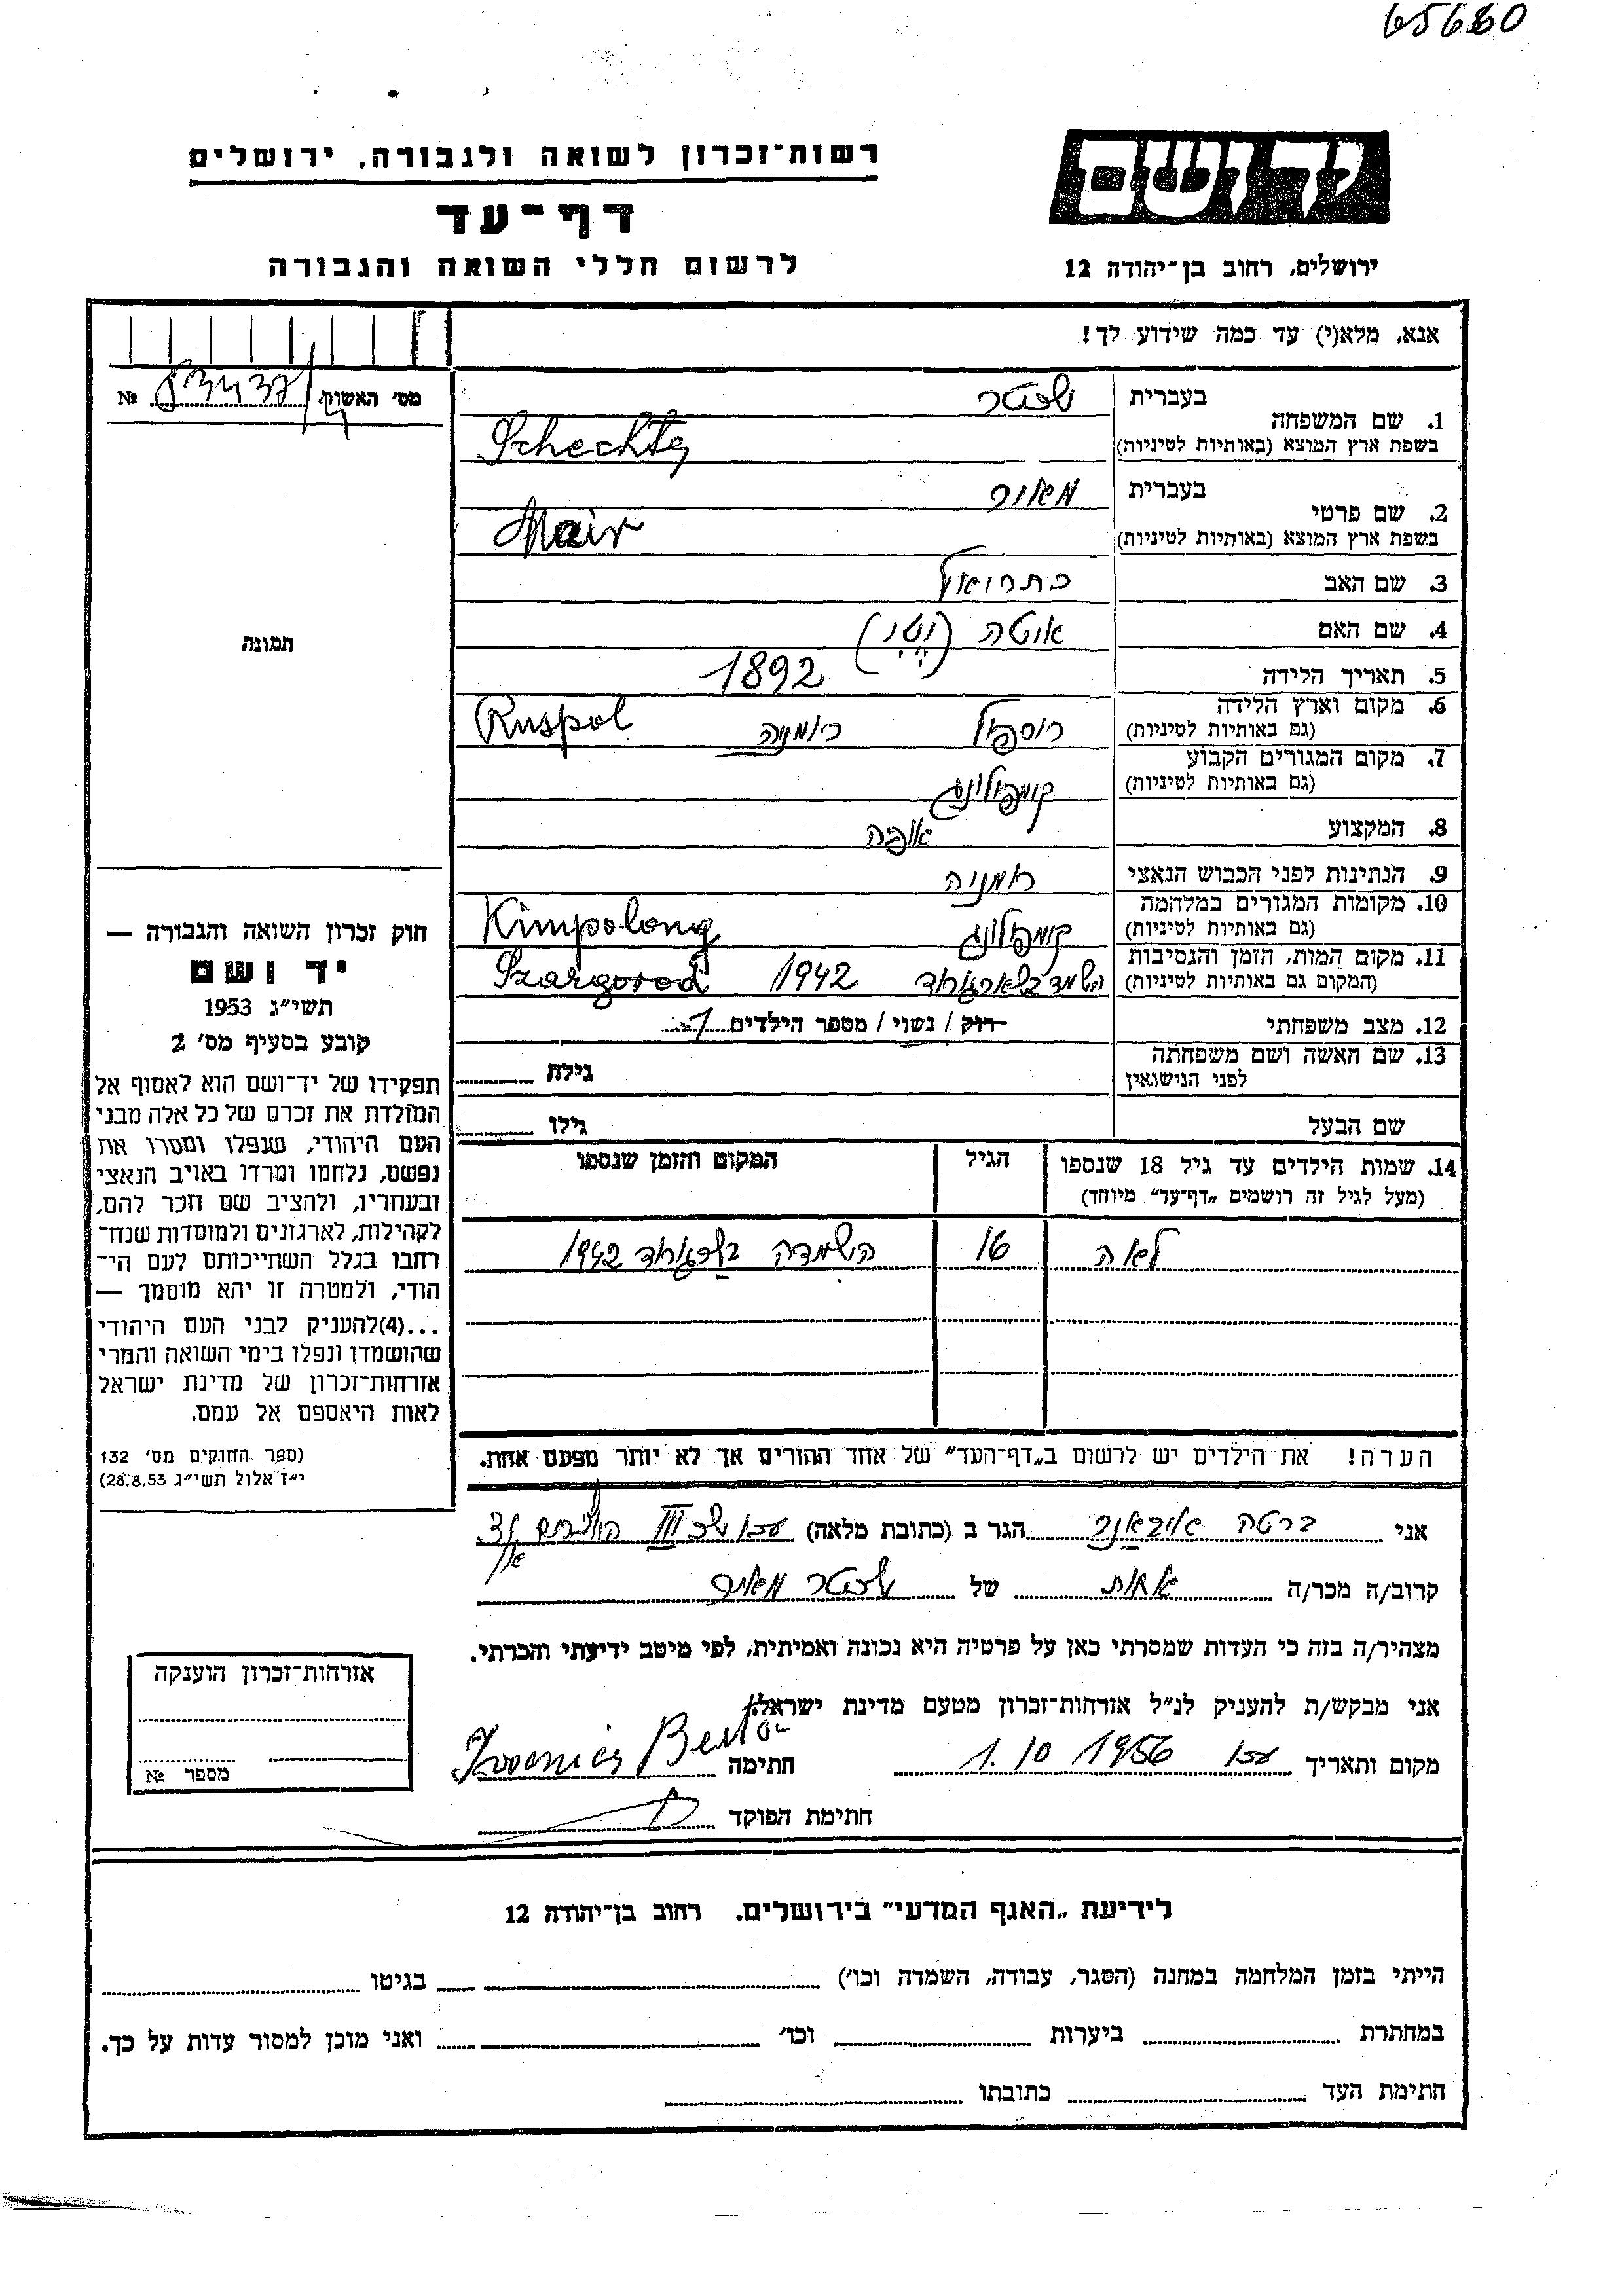 65680
רשות־זכרון לשואה ולגבורה, ירושלים
דף־עד
לרשום חללי השואה והגבורה
יד ושם
ירושלים, רחוב בן־יהודה 12
אנא, מלא(י) עד כמה שידוע לך!
מס׳ האשוק №
1. שם המשפחה בעברית שכטר
בשפת ארץ המוצא (באותיות לטיניות) Schechter
2. שם פרטי בעברית מאיר
בשפת ארץ המוצא (באותיות לטיניות) Mair
3. שם האב
4. שם האם
5. תאריך הלידה 1892
6. מקום וארץ הלידה רוספול רומניה Ruspol
(גם באותיות לטיניות)
7. מקום המגורים הקבוע קומפולונג
(גם באותיות לטיניות)
8. המקצוע אופה
9. הנתינות לפני הכבוש הנאצי רומניה
10. מקומות המגורים במלחמה קומפולונג Kimpolong
(גם באותיות לטיניות)
11. מקום המות, הזמן והנסיבות
(המקום גם באותיות לטיניות) הושמד 1942 Szargorod
12. מצב משפחתי רוק / נשוי / מספר הילדים 1
13. שם האשה ושם משפחתה
לפני הנישואין גילה
שם הבעל גילו
14. שמות הילדים עד גיל 18 שנספו הגיל המקום והזמן שנספו
(מעל לגיל זה רושמים „דף־עד״ מיוחד)
לאה 16 הושמדה 1942
הערה! את הילדים יש לרשום ב„דף־העד״ של אחד ההורים אך לא יותר מפעם אחת.
תמונה
חוק זכרון השואה והגבורה —
יד ושם
תשי״ג 1953
קובע בסעיף מס׳ 2
תפקידו של יד־ושם הוא לאסוף אל
המולדת את זכרם של כל אלה מבני
העם היהודי, שנפלו ומסרו את
נפשם, נלחמו ומרדו באויב הנאצי
ובעוזריו, ולהציב שם וזכר להם,
לקהילות, לארגונים ולמוסדות שנח־
רבו בגלל השתייכותם לעם הי־
הודי, ולמטרה זו יהא מוסמך —
...(4)להעניק לבני העם היהודי
שהושמדו ונפלו בימי השואה והמרי
אזרחות־זכרון של מדינת ישראל
לאות היאספם אל עמם.
(ספר החוקים מס׳ 132
י״ז אלול תשי״ג 28.8.53)
אני ברטה הגר ב (כתובת מלאה) עכו
קרוב/ה מכר/ה אחות של שכטר מאיר
מצהיר/ה בזה כי העדות שמסרתי כאן על פרטיה היא נכונה ואמיתית, לפי מיטב ידיעתי והכרתי.
אני מבקש/ת להעניק לנ״ל אזרחות־זכרון מטעם מדינת ישראל.
מקום ותאריך עכו 1.10 1956 חתימה Berta
חתימת הפוקד
אזרחות־זכרון הוענקה
מספר №
לידיעת „האגף המדעי״ בירושלים. רחוב בן־יהודה 12
הייתי בזמן המלחמה במחנה (הסגר, עבודה, השמדה וכו׳) בגיטו
במחתרת ביערות וכו׳ ואני מוכן למסור עדות על כך.
חתימת העד כתובתו